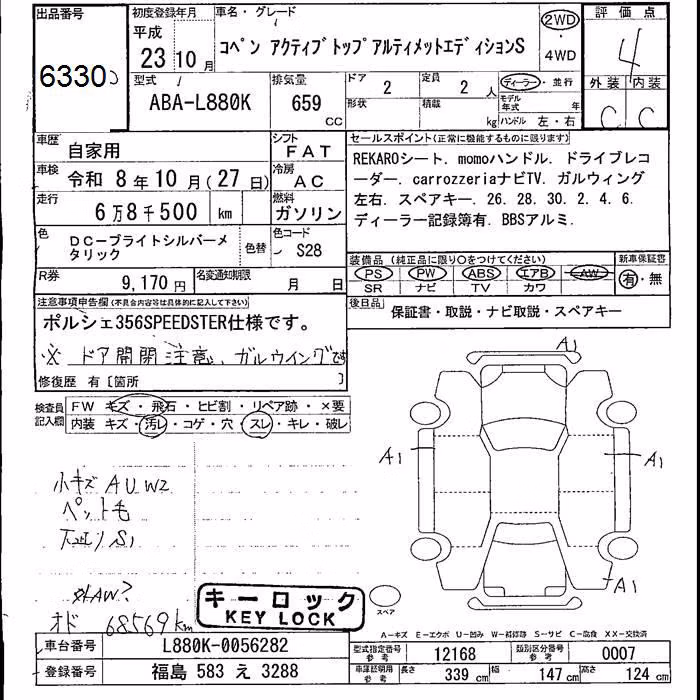 出品番号 初度登録年月 車名・グレード 2WD ・ 4WD 評価点
6330
平成 23 10月 コペン アクティブトップアルティメットエディションS 4
型式 排気量 ドア 2 定員 2人 ディーラー・並行 外装 内装
ABA-L880K 659 CC 形状 積載 kg モデル年式 年 ハンドル 左・右 C C
車歴 自家用 シフト FAT セールスポイント(正常に機能するものに限ります)
車検 令和 8年10月(27日) 冷房 AC
走行 6万8千500 km 燃料 ガソリン
REKAROシート. momoハンドル. ドライブレコ
ーダー. carrozzeriaナビTV. ガルウィング
左右. スペアキー. 26. 28. 30. 2. 4. 6.
ディーラー記録簿有. BBSアルミ.
色 DC-ブライトシルバーメタリック 色替 色コード S28
装備品(純正品に限り○をつけてください) 新車保証書
PS PW ABS エアB AW 有・無
SR ナビ TV カワ
R券 9,170円 名変通知期限 月 日
後日品 保証書・取説・ナビ取説・スペアキー
注意事項申告欄(不具合内容等は具体的に記入して下さい)
ポルシェ356SPEEDSTER仕様です。
※ ドア開閉注意、ガルウイングです
修復歴 有〔箇所 〕
検査員記入欄 FW キズ・飛石・ヒビ割・リペア跡・×要
内装 キズ・汚レ・コゲ・穴・スレ・キレ・破レ
A1
A1
A1
A1
小キズ A U W2
ペット毛
下廻り S1
外AW?
オド 68569km
キーロック
KEY LOCK
スペア
A-キズ E-エクボ U-凹み W-補修跡 S-サビ C-腐食 XX-交換済
車台番号 L880K-0056282 型式指定番号 参考 12168 類別区分番号 参考 0007
登録番号 福島 583 え 3288 車庫証明用 参考 長さ 339 cm 幅 147 cm 高さ 124 cm